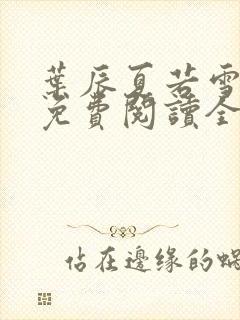 葉辰夏若雪
免費閱讀全
佔在邊缘的蝸